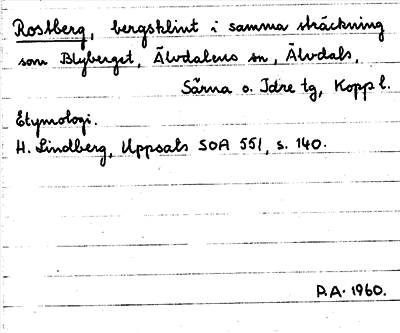 Rostberg, bergsklint i samma sträckning
som Blyberget, Älvdalens sn, Älvdals,
Särna o. Idre tg, Kopp l.
Etymologi.
H. Lindberg, Uppsals SOA 551, s. 140.
A.A. 1960.